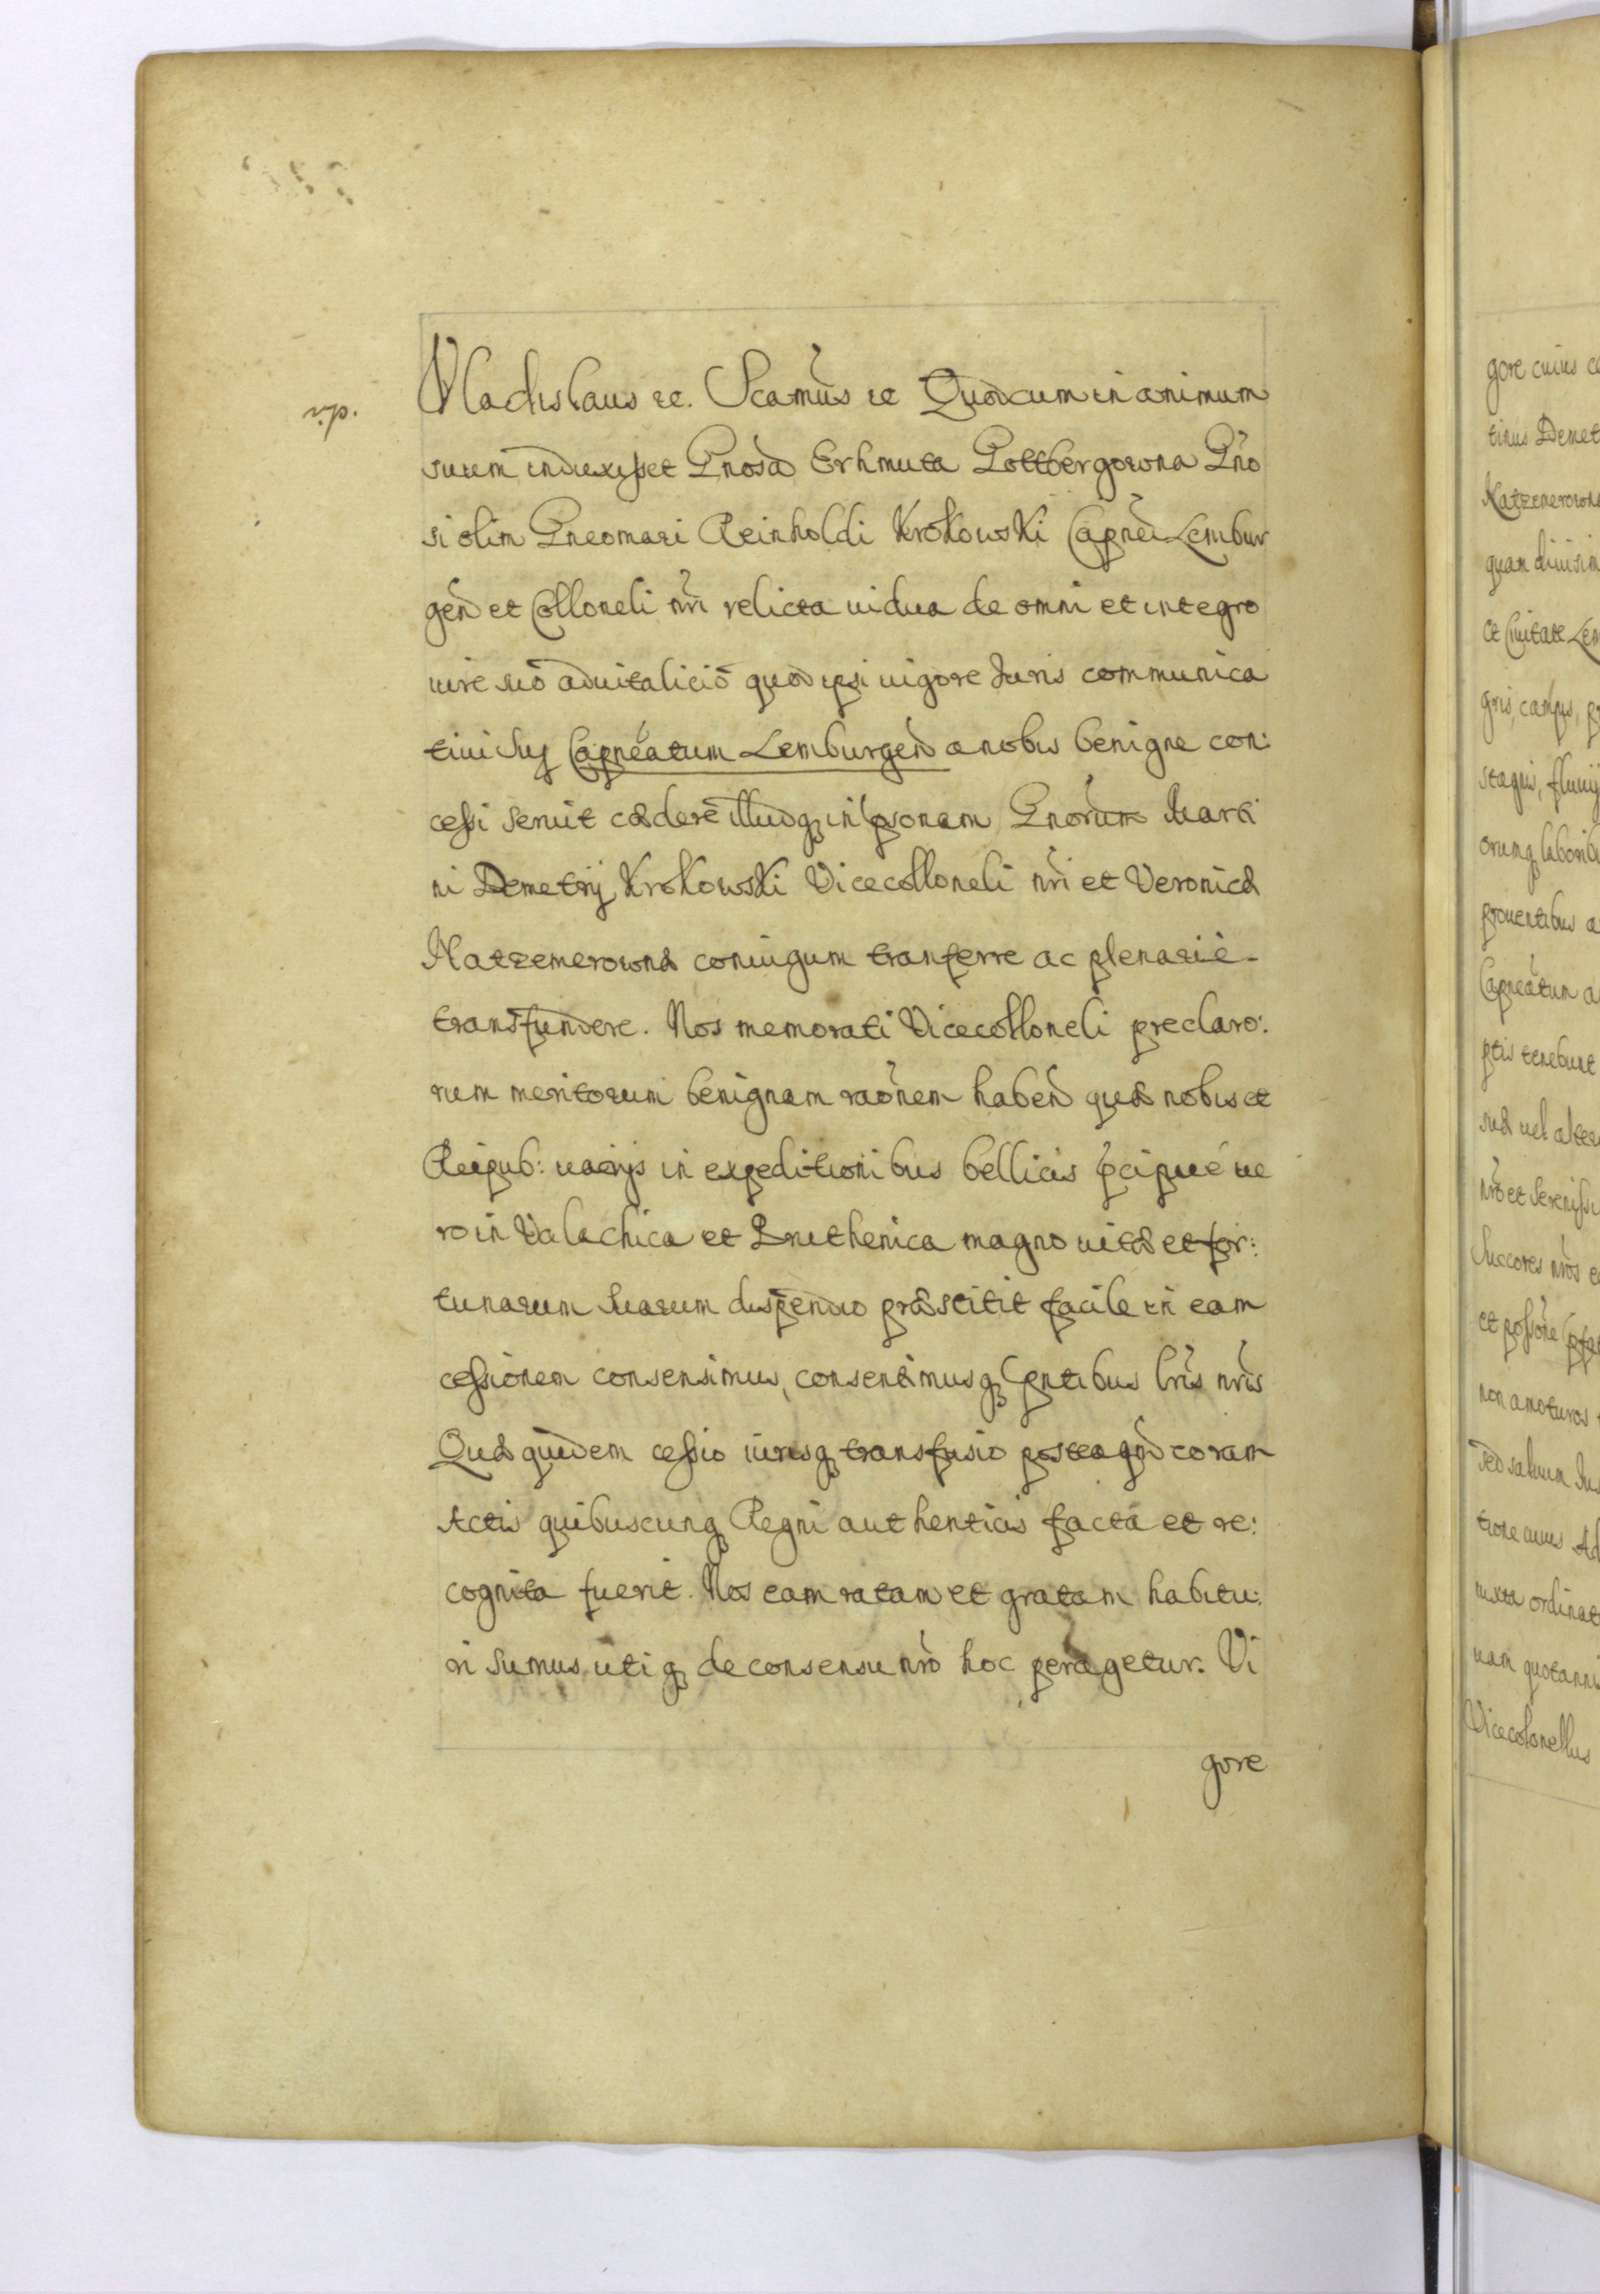 v.p.
Vladislaus etc. Scamus etc Quod cum in animum
suum induxisset Gnosa Erhmuta Gottbergowna Gno
si olim Gneomari Reinholdi Krokowski Capnei Lembur
gen et Colloneli nri relicta uidua de omni et integro
iure suo aduitalicio quod ipsi uigore Juris communica
tiui Suj Capneatum Lemburgen a nobis benigne con:
cessi seruit cædere illudq in psonam Gnorum Marti
ni Demetrij Krokowski Vicecolloneli nri et Veronicæ
Natzemerownæ coniugum tranferre ac plenariè
transfundere. Nos memorati Vicecolloneli preclaro:
rum meritorum benignam raonem haben quæ nobis et
Reipub: uarijs in expeditionibus bellicis pcipué ue
ro in Valachica et Bruthenica magno uitæ et for:
tunarum Suarum dispendio præstitit facile in eam
cessionem consensimus, consentimusq pntibus lris nris
Quæ quidem cessio iurisq transfusio postea qm coram
Actis quibuscunq Regni authenticis facta et re:
cognita fuerit. Nos eam ratam et gratam habitu:
ri Sumus, utiq de consensu nro hoc peragetur. Vi
gore
gore cuius
tinus Demet
Natzemerown
quam diuisim
et Ciuitate Lem
gris, campis,
stagnis, fluuij
orumq laborib
prouentibus
Capneatum
ptis tenebunt
suæ uel alter
nro et Sereniss
Succores nros
et possõne
non amoturos
Sed saluum Ju
tione cuius
iuxta ordinat
uam quotanni
Vicecolonellus